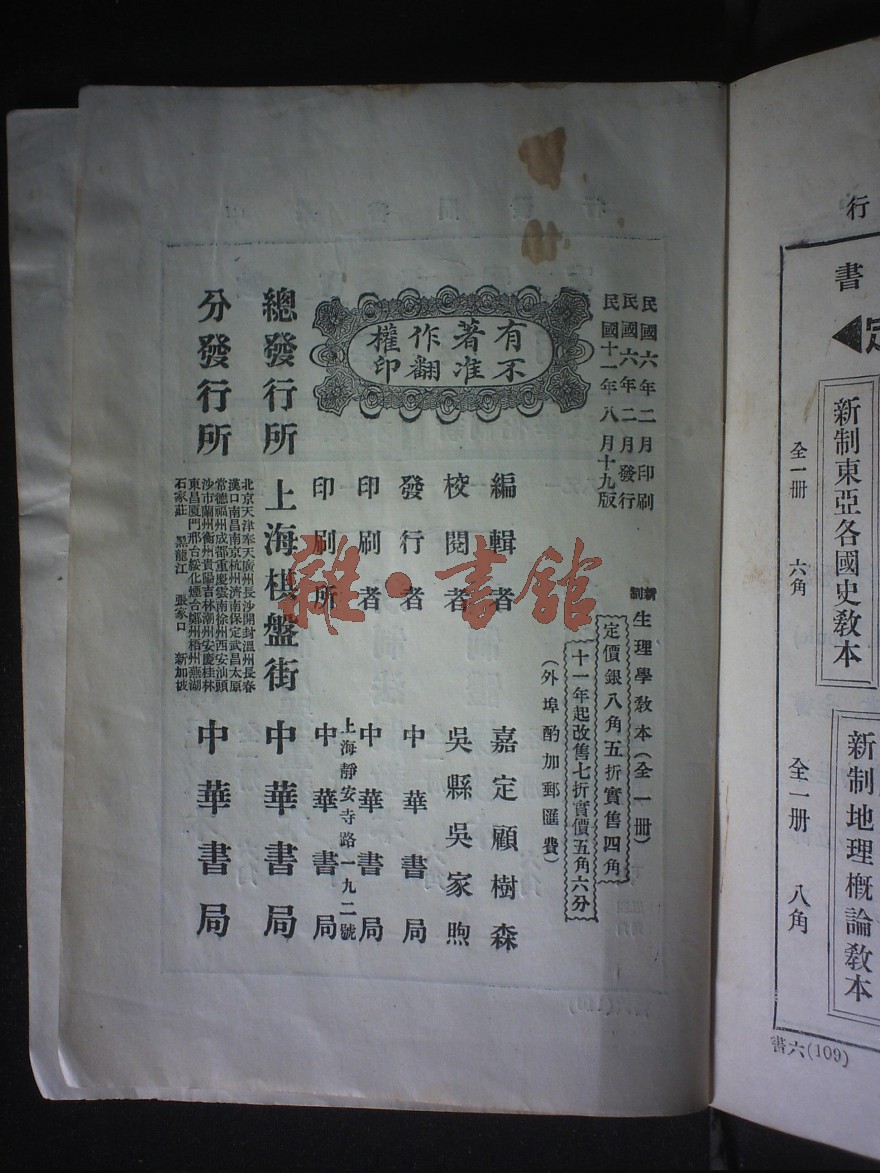 民國六年二月印刷
民國六年二月發行
民國十一年八月十九版
有著作權
不准翻印
新制生理學教本(全一册)
定價銀八角五折實售四角
十一年起改售七折實價五角六分
(外埠酌加郵匯費)
編輯者 嘉定顧樹森
校閱者 吳縣吳家煦
發行者 中華書局
印刷者 中華書局
上海靜安寺路一九二號
印刷所 中華書局
總發行所 上海棋盤街 中華書局
分發行所
北京天津奉天廣州長沙開封溫州長春
漢口南昌南京杭州濟南保定武昌太原
常德福州成都重慶雲南徐州西安汕頭
沙市蘭州衡州貴陽吉林潮州安慶桂林
東昌廈門邢台綏化煙台鄭州梧州蕪湖
石家莊 黑龍江 張家口 新加坡
中華書局
雜·書館
行
書
定
新制東亞各國史教本
全一册 六角
新制地理概論教本
全一册 八角
書六(109)